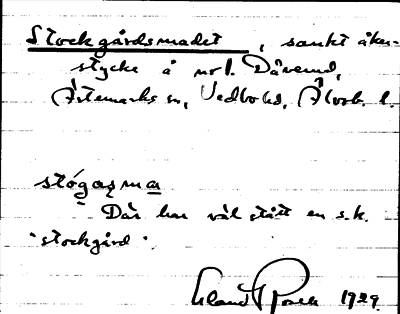 Stockgårdsmadet, sankt åker-
stycke å nr 1. Dåverud,
Ärtemarks sn, Vedbo hd, Älvsb. l.
stógaṣma
Där har väl stått en s.k.
"stockgård".
1929